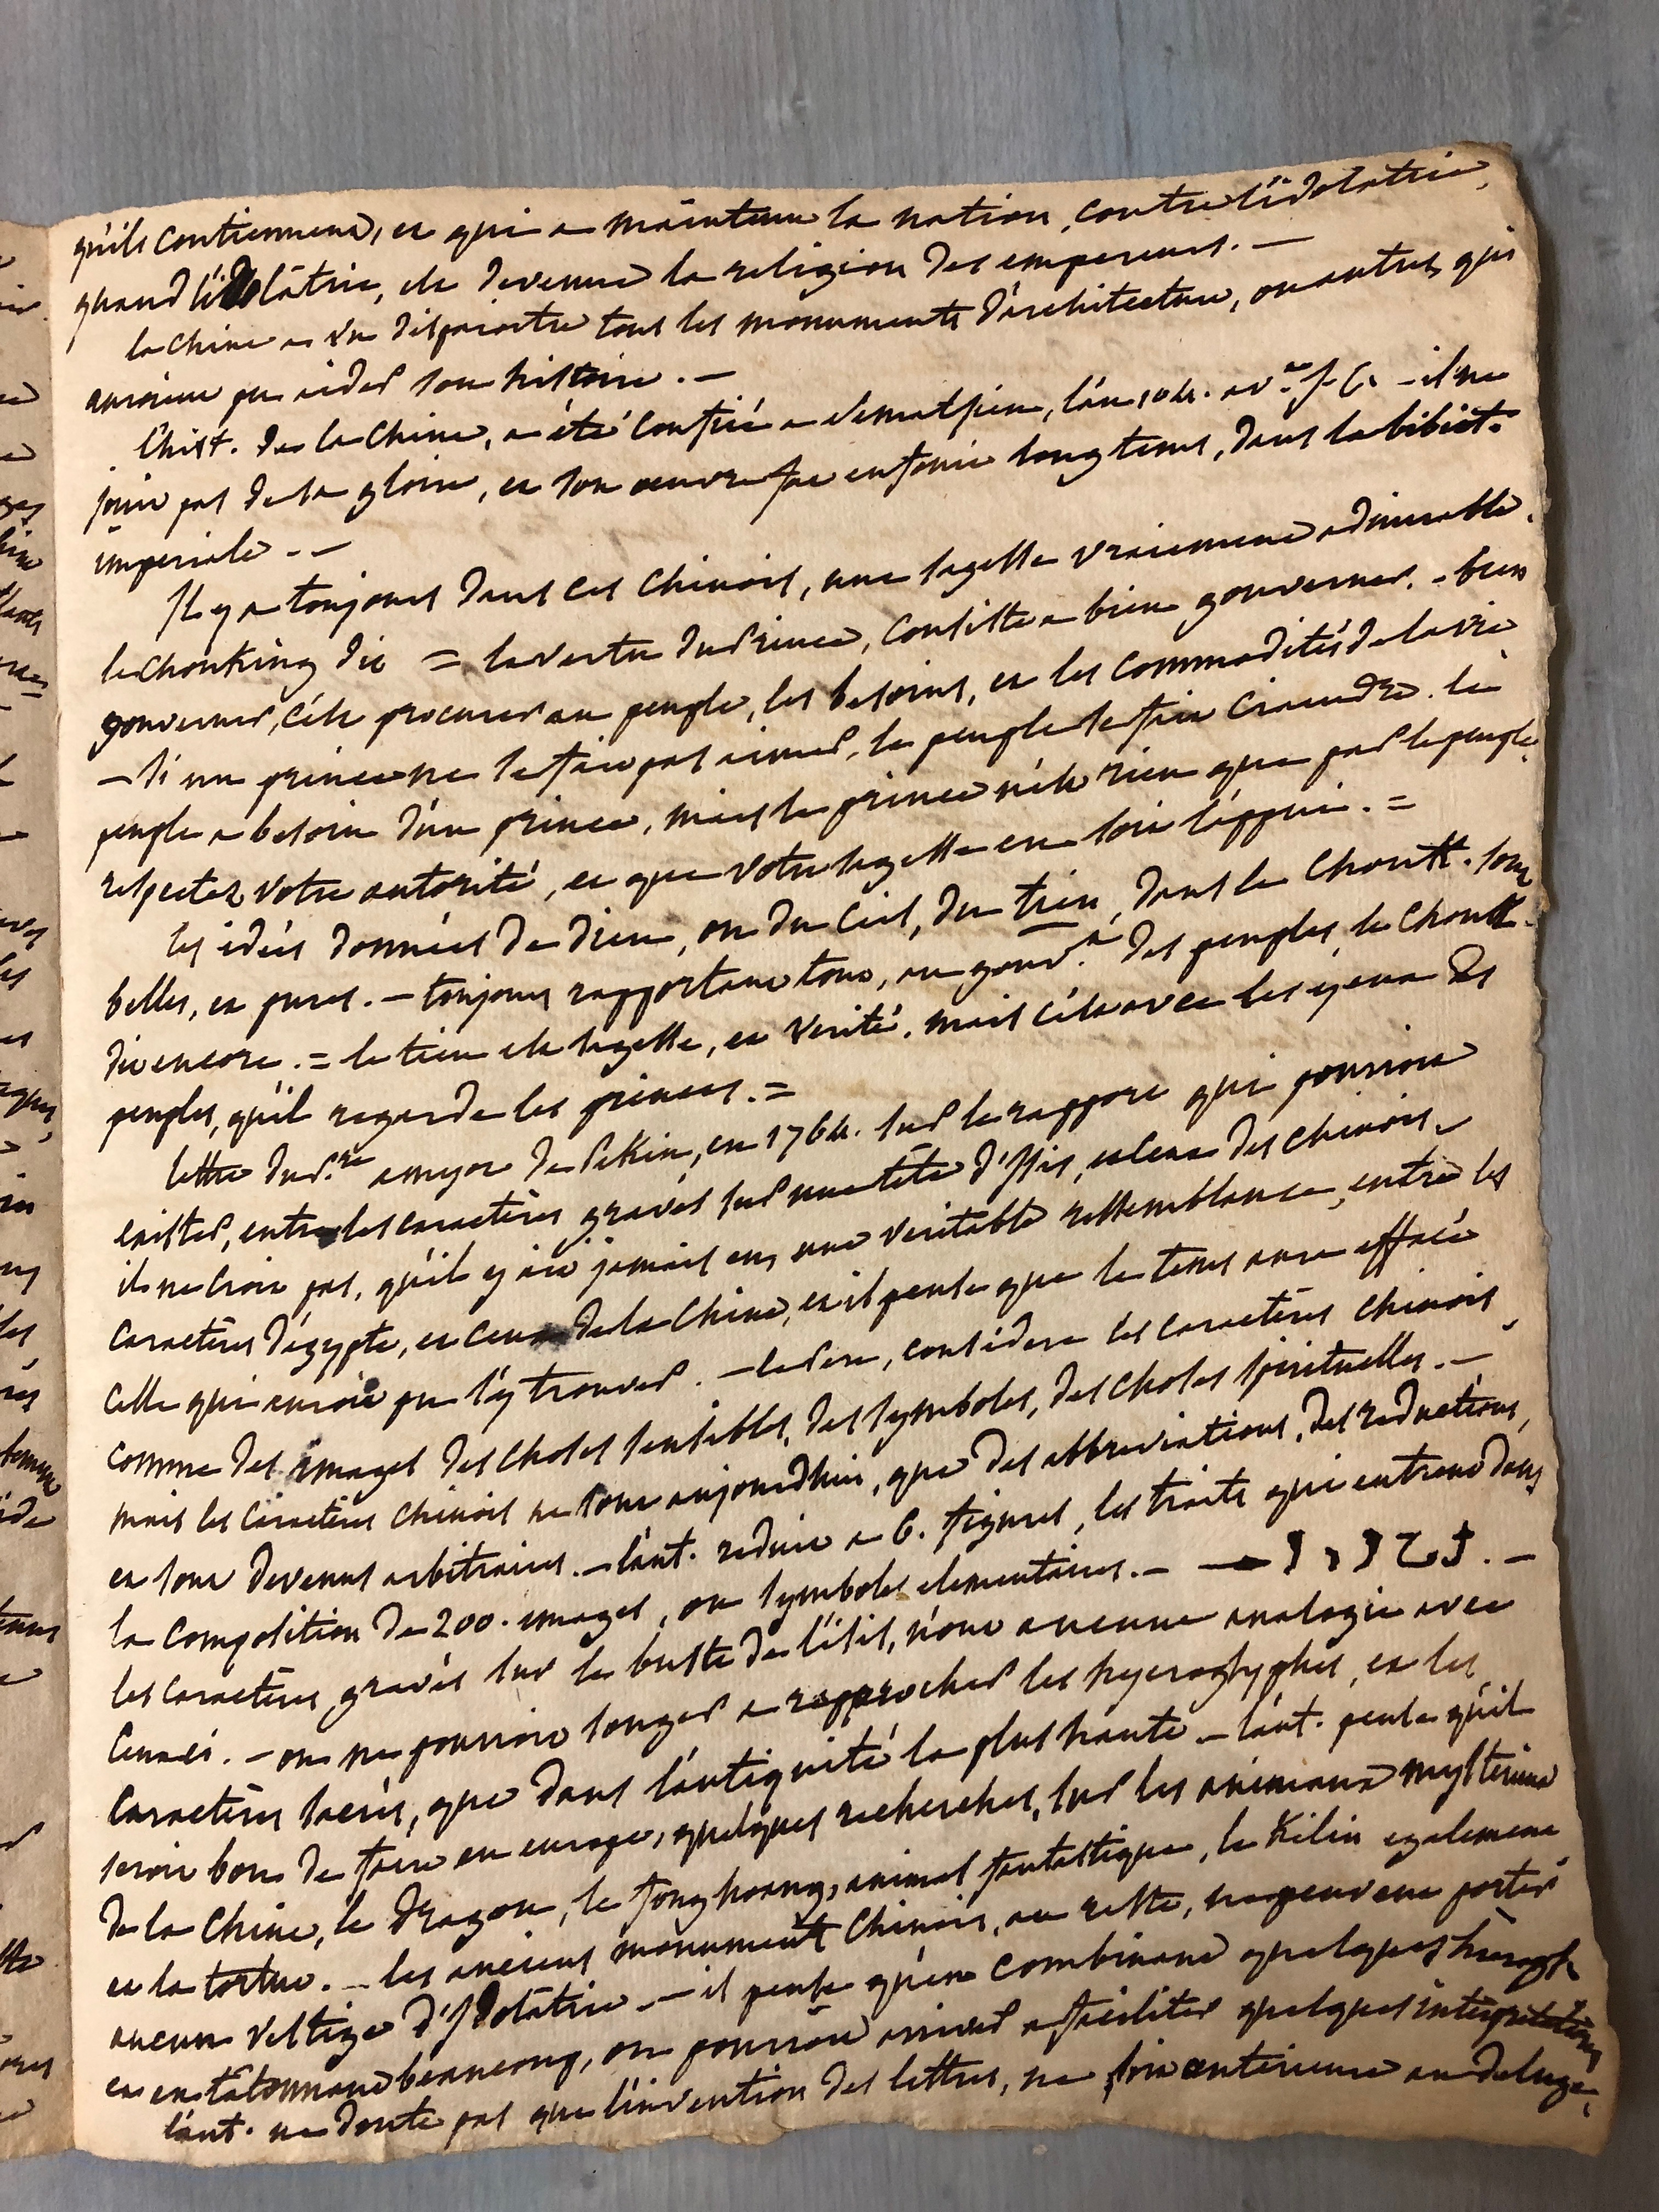 qu'ils contiennent, et qui a maintenu la nation, contre l'idolatrie,
quand l'idolâtrie, est devenue la religion des empereurs. —
la chine a vu disparoitre tous les monuments d'architecture, ou autres qui
auroient pu aider son histoire. —
l'hist. de la chine, a été confiée a sematsien, l'an 104. av.t J. C. – il ne
jouit pas de sa gloire, et son œuvre fut enfouie longtems, dans la bibliot.
imperiale. - —
Il y a toujours dans ces chinois, une sagesse vraiement admirable.
le chouking dit = la vertu du Prince, consiste a bien gouverner. - bien
gouverner, c'est procurer au peuple, les besoins, et les commodités de la vie
– si un prince ne se fait pas aimer, le peuple se fait craindre. le
peuple a besoin d'un prince, mais le prince n'est rien que par le peuple.
respectez votre autorité, et que votre sagesse en soit l'appui. =
les idées données de dieu, ou du ciel, du tien, dans le chouk. sont
belles, et pures. – toujours rapportant tout, au gouv.t des peuples, le chouk.
dit encore. = le tien est sagesse, et verité. mais c'est avec les yeux des
peuples, qu'il regarde les princes. =
lettre du P.re amyot de Pekin, en 1764. sur le rapport qui pourroit
exister, entre les caractères gravés sur une tête d'Isis, et ceux des chinois. –
il ne croit pas, qu'il y ait jamais eu, une veritable ressemblance, entre les
caractères d'égypte, et ceux de la chine, et il pense que le tems aura effacé
celle qui auroit pu s'y trouver. – le Pere, considere les caractères chinois,
comme des images des choses sensibles, des symboles, des choses spirituelles. –
mais les caractères chinois ne sont aujourdhui, que des abbreviations, des reductions,
et sont devenus arbitraires. – l'aut. reduit a 6. figures, les traits qui entrent dans
la composition de 200. images, ou symboles elementaires. –
les caractères, gravés sur le buste de l'isis, n'ont aucune analogie avec
ceux ci. – on ne pourroit songer a rapprocher les hyeroglyphes, et les
caractères sacrés, que dans l'antiquité la plus haute. – l'aut. pense qu'il
seroit bon de faire en europe, quelques recherches, sur les animaux mysterieux
de la chine, le dragon, le fonghoang, animal fantastique, le Kilin egalement
et la tortue. – les anciens monuments chinois, au reste, ne peuvent porter
aucun vestige d'Idolâtrie. – il pense qu'en combinant quelques hierogl.
et en tâtonnant beaucoup, on pourroit arriver a faciliter quelques interpretations
l'aut. ne doute pas que l'invention des lettres, ne soit anterieure au deluge.